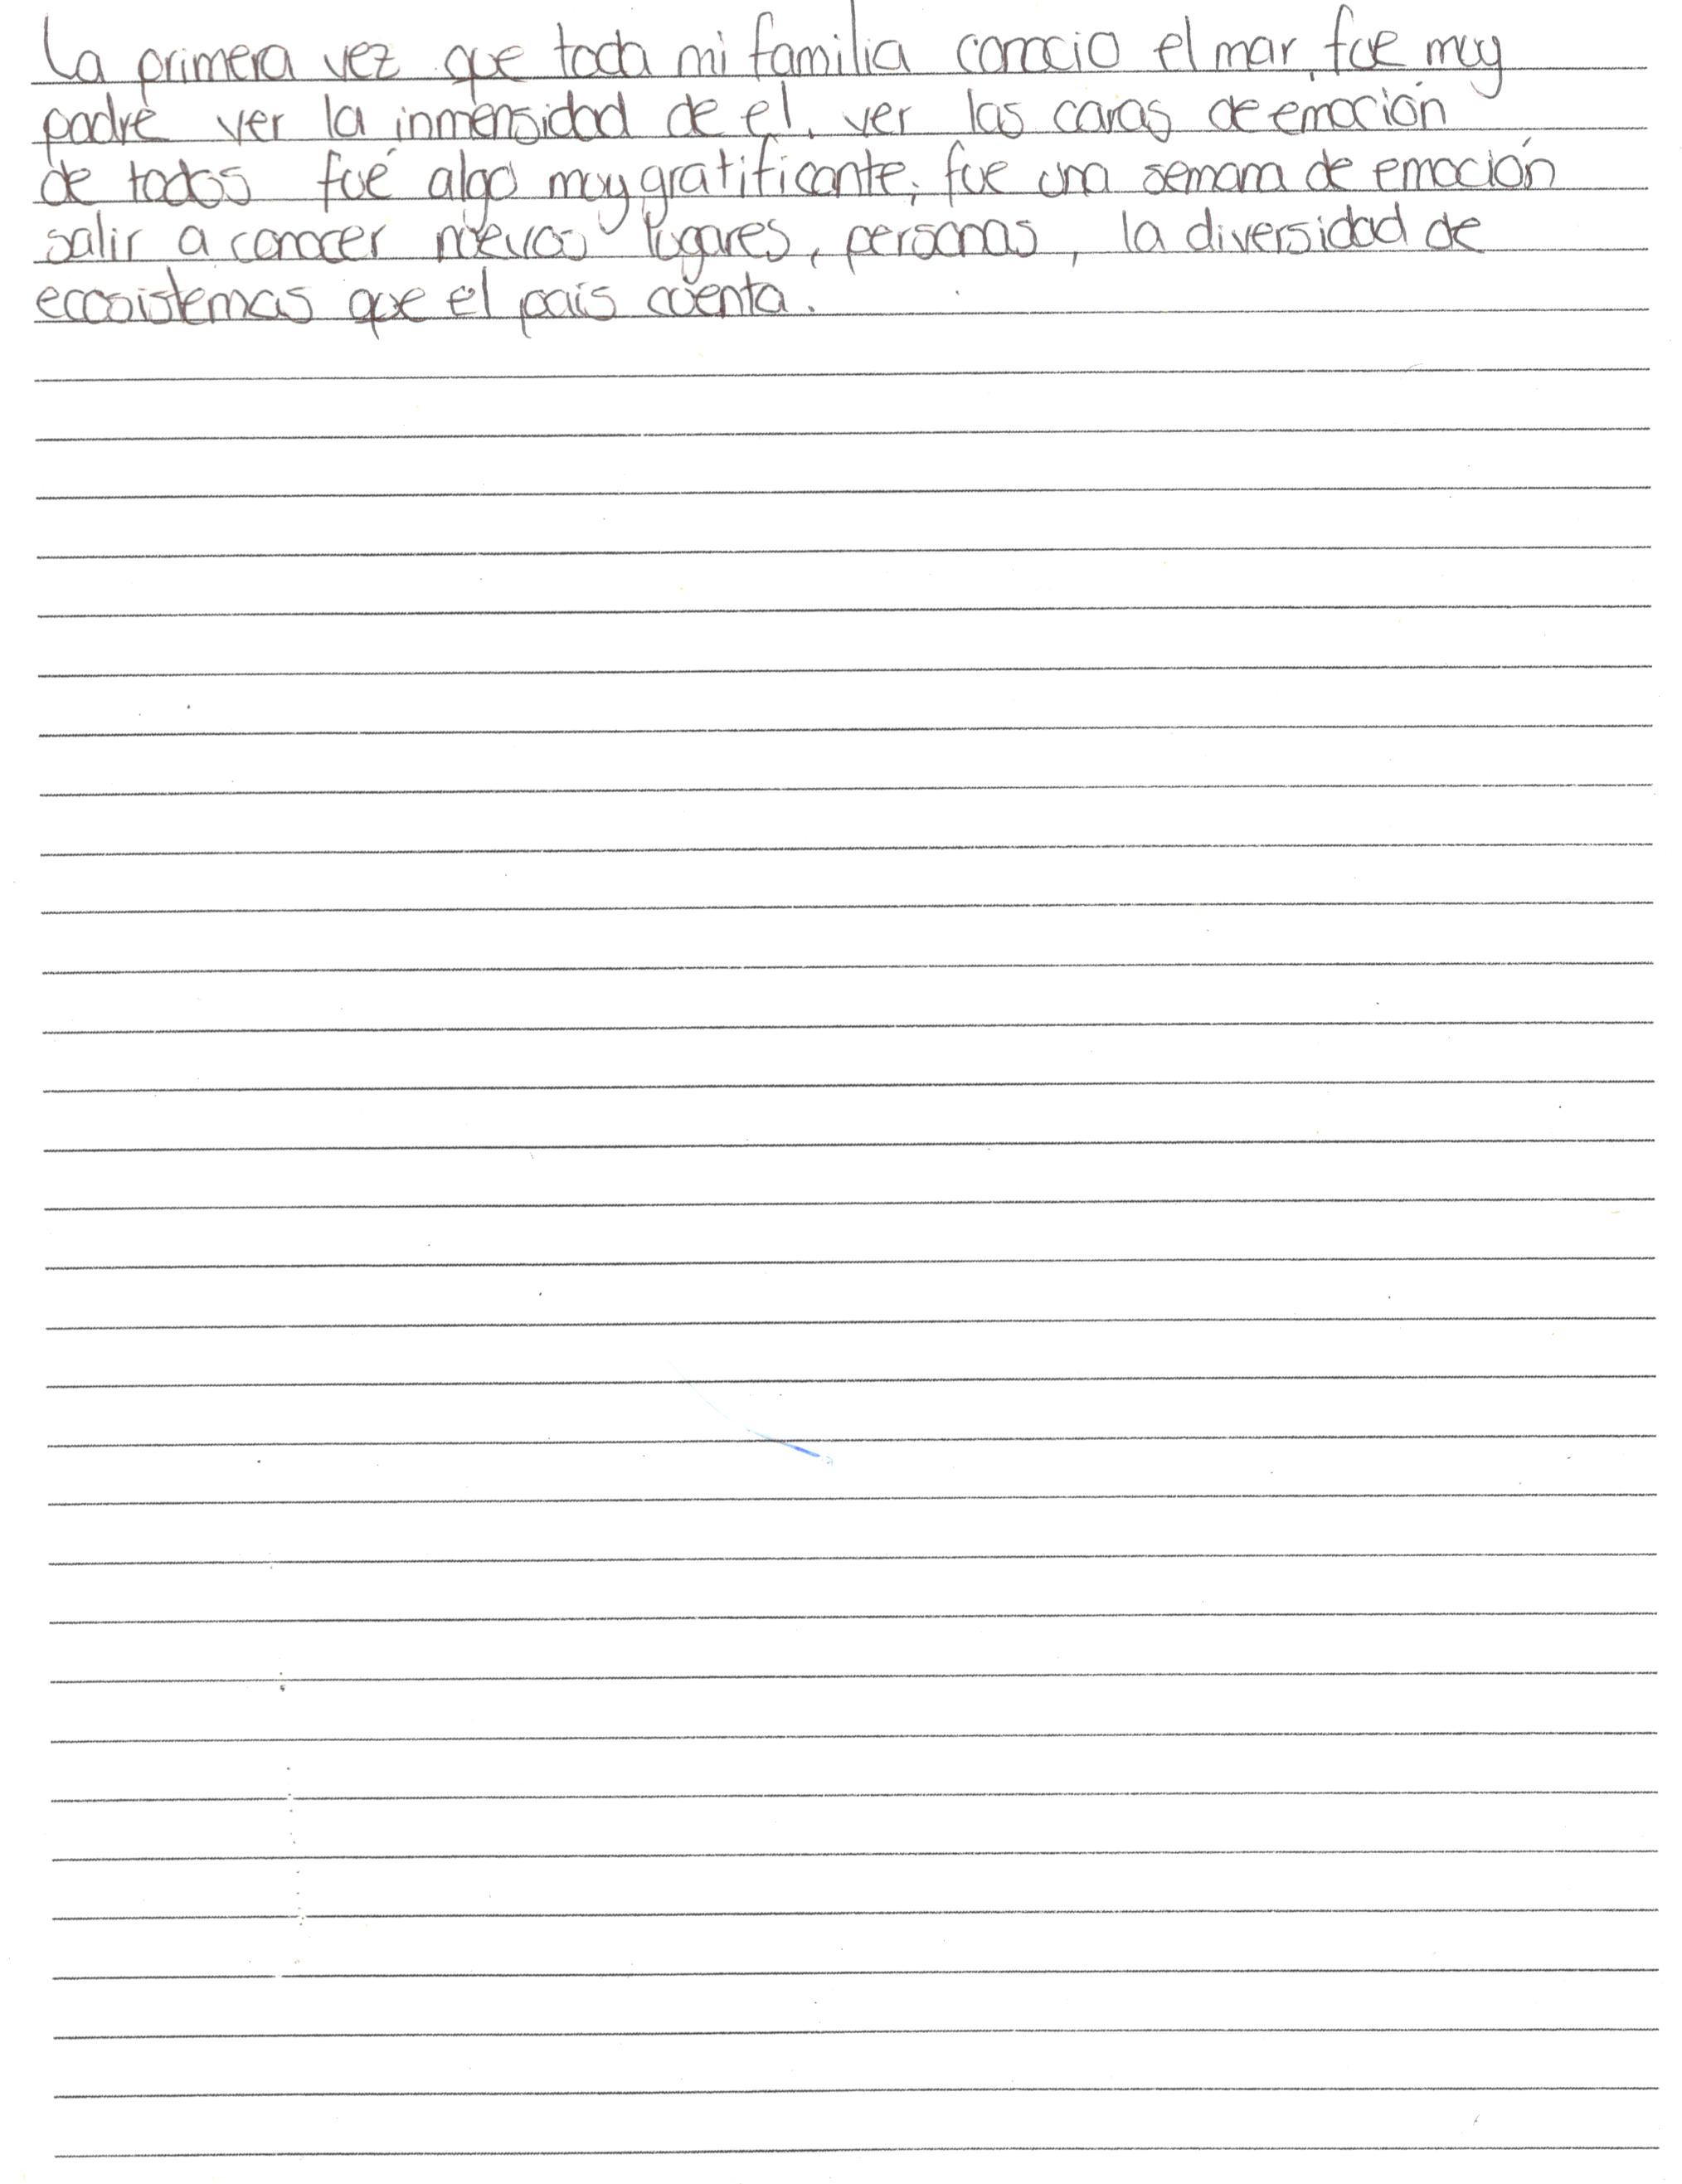 La primera vez que toda mi familia conocio el mar, fue muy
padre ver la inmensidad de el, ver las caras de emoción
de todos fué algo muy gratificante, fue una semana de emoción
salir a conocer nuevos lugares, personas, la diversidad de
ecosistemas que el pais cuenta.